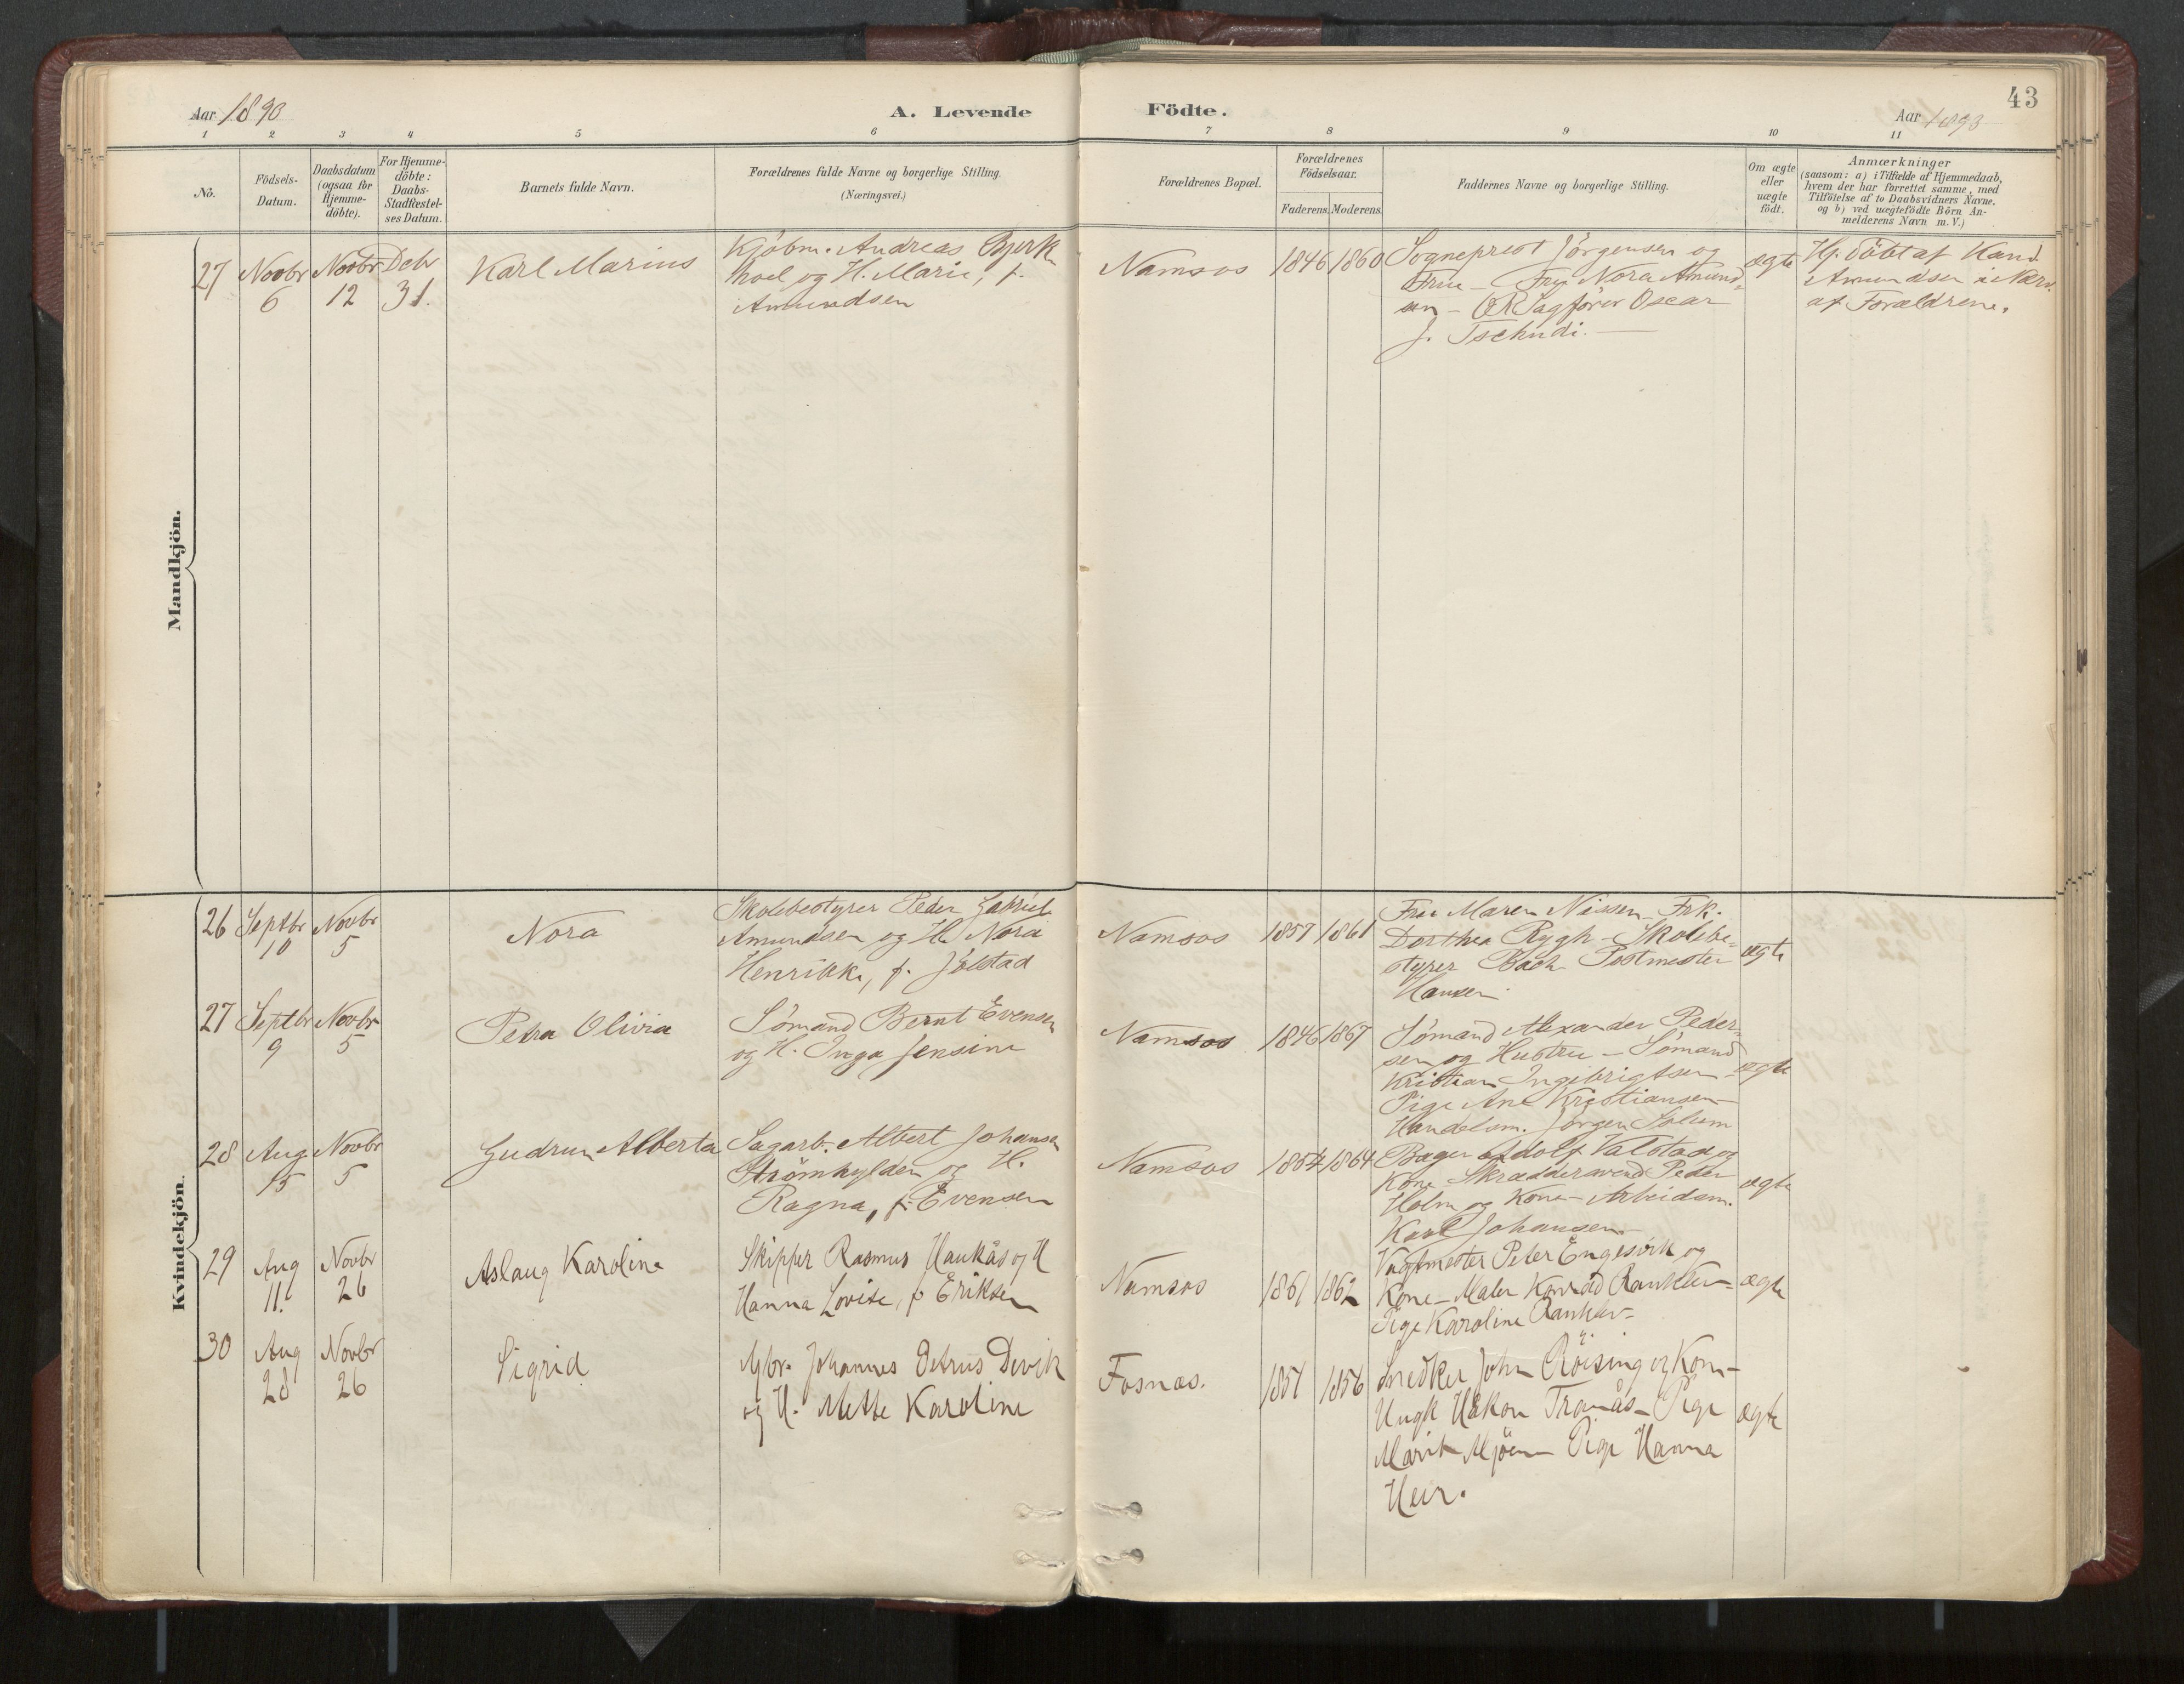 43
Aar 1893
A. Levende Födte.
Aar 1893
1 2 3 4 5 6 7 8 9 10 11
No.
Födsels-
Datum.
Daabsdatum
(ogsaa for
Hjemme-
döbte).
For Hjemme-
döbte:
Daabs-
Stadfæstel-
ses Datum.
Barnets fulde Navn.
Forældrenes fulde Navne og borgerlige Stilling.
(Næringsvei.)
Forældrenes Bopæl.
Forældrenes
Födselsaar.
Faderens. Moderens.
Faddernes Navne og borgerlige Stilling.
Om ægte
eller
uægte
födt.
Anmærkninger
(saasom: a) i Tilfælde af Hjemmedaab,
hvem der har forrettet samme, med
Tilföielse af to Daabsvidners Navne.
og b) ved uægtefödte Börn An-
melderens Navn m. V.)
Mandkjön.
27
Novbr
6
Novbr
12
Debr
31.
Karl Marius
Kjöbm. Andreas Bjerk
hoel og H. Marie, f.
Amundsen
Namsos
1846 1860
Sogneprest Jörgensen og
Frue - Frøk Nora Amund-
sen - ORSagförer Oscar
J. Tschudi.
ægte
Hj. döbt af Kand.
Amundsen i Nærv.
af Forældrene.
Kvindekjön.
26
Septbr
10
Novbr
5
Nora
Skolebestyrer Peder Gabriel
Amundsen og H. Nora
Henrikke, f. Jölstad
Namsos
1857 1861
Fru Maren Nissen - Frk.
Dorthea Rygh - Skolebe-
styrer Bach Postmester
Hansen
ægte
27
Septbr
9
Novbr
5
Petra Olivia
Sömand Bernt Evensen
og H. Inga Jensine
Namsos
1846 1867
Sömand Alexander Peder-
sen og Hustru - Sömand
Kristian Ingebrigtsen -
Pige Ane Kristiansen -
Handelsm. Jörgen Solum
ægte
28
Aug
15
Novbr
5
Gudrun Alberta
Sagarb. Albert Johansen
Strömhylden og H.
Ragna, f. Evensen
Namsos
1854 1864
Bager Adolf Valstad og
Kone - Skrædersvend Peder
Holm og Kone - Arbeidsm.
Karl Johansen
ægte
29
Aug
11.
Novbr
26
Aslaug Karoline
Skipper Rasmus Haukås og H
Hanna Lovise, f. Eriksen
Namsos
1861 1862
Vagtmester Peter Engesvik og
Kone - Maler Konrad Ranklev -
Pige Karoline Ranklev -
ægte
30
Aug
28
Novbr
26
Sigrid
Gbr. Johannes Petrus Devik
og H. Mette Karoline
Fosnæs.
1857 1856
Snedker John Röising og Kone -
Ungk Håkon Tranås - Pige
Marit Mjöen Pige Hanna
Heir.
ægte